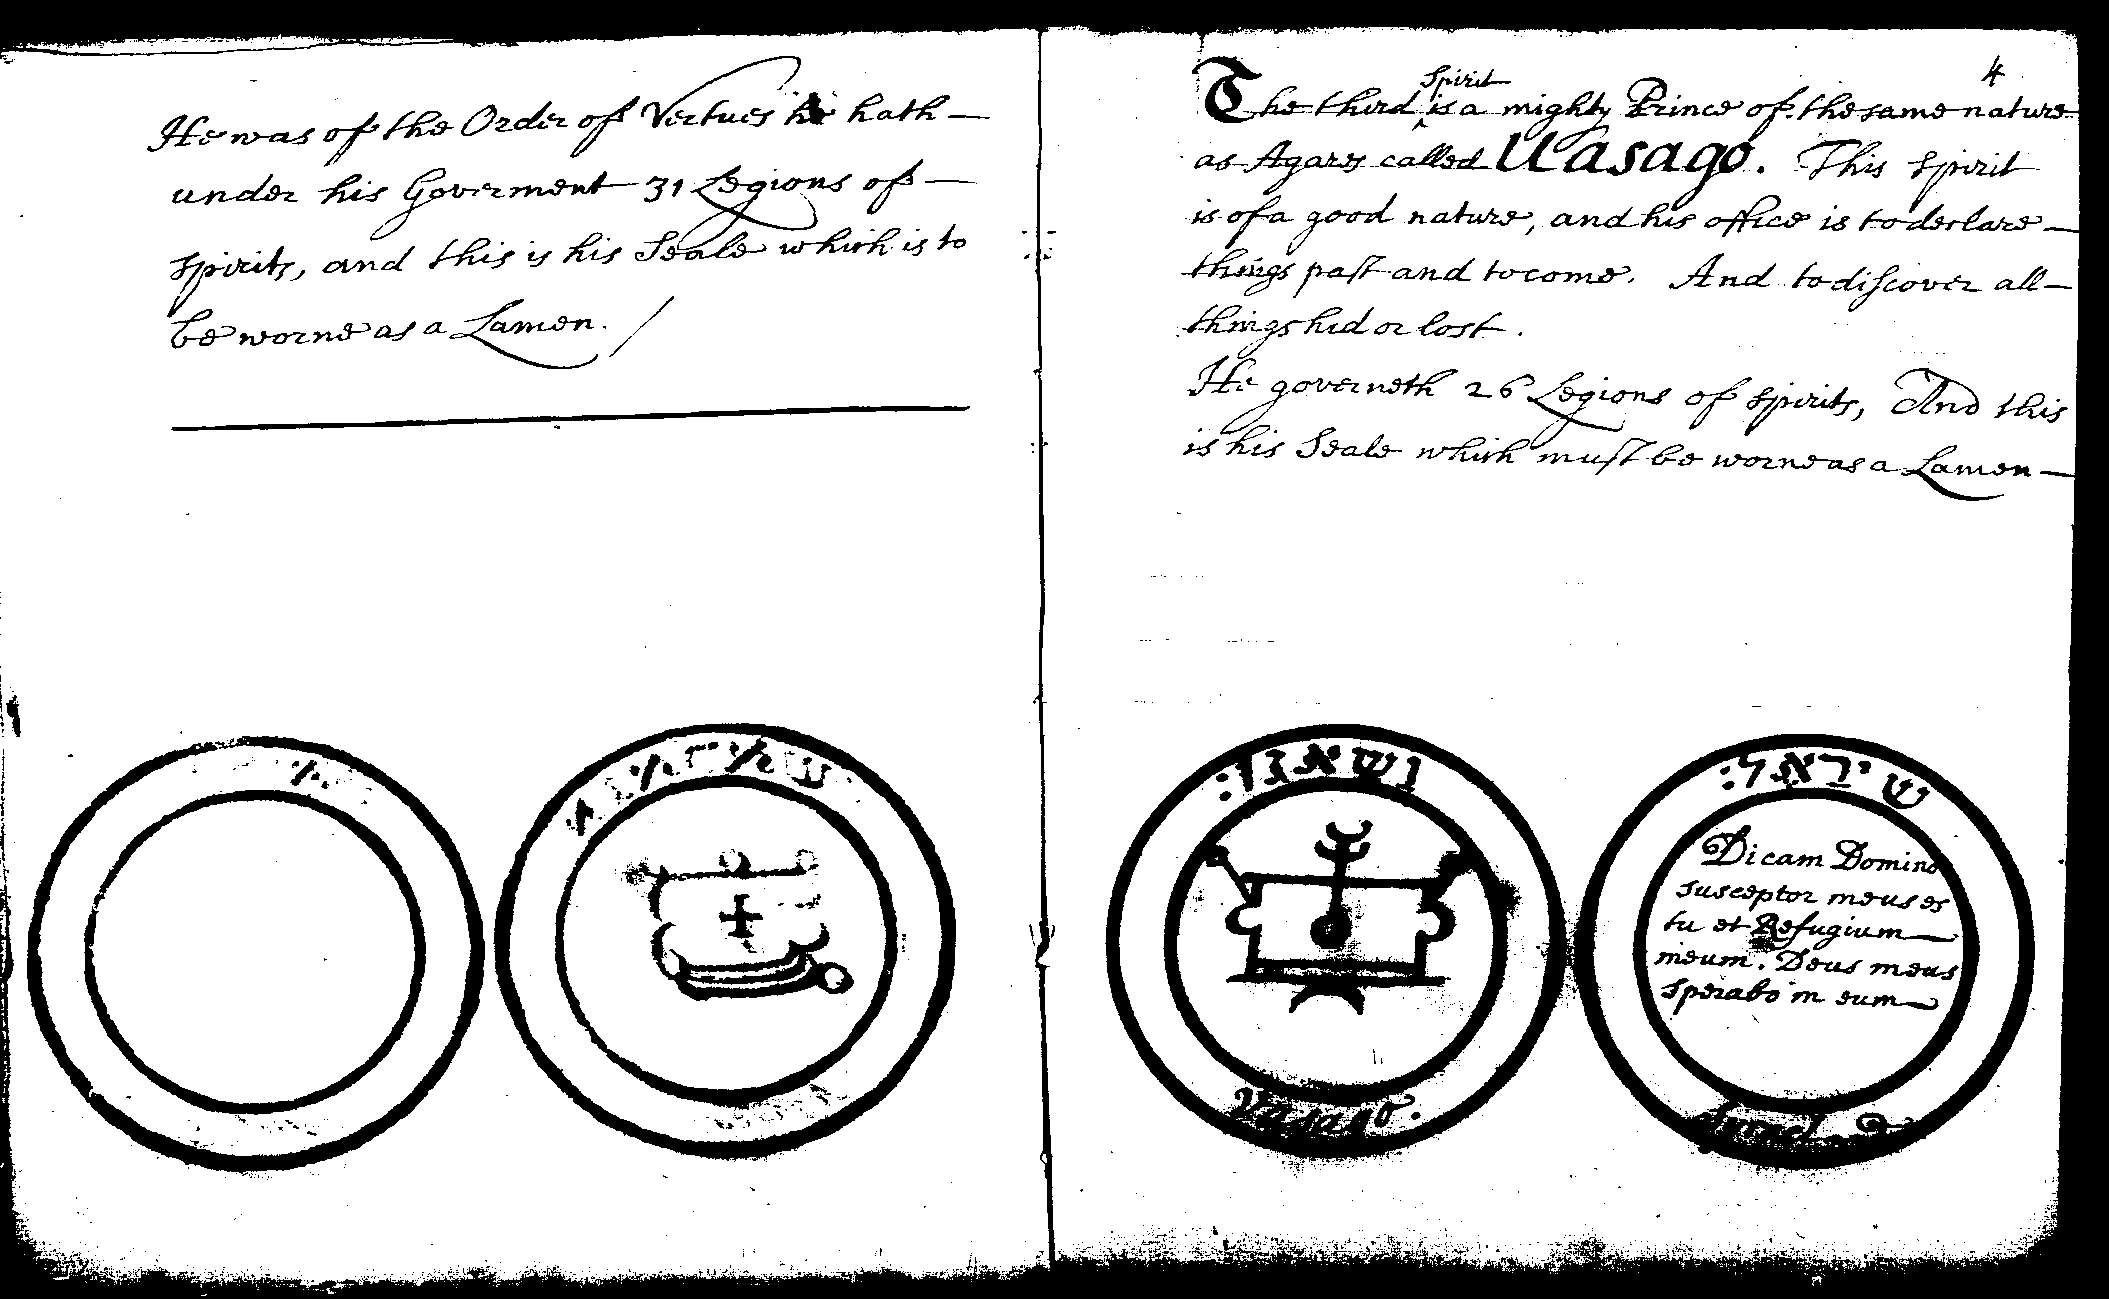 He was of the Order of Vertues he hath
under his Goverment 31 Legions of
spirits, and this is his Seale which is to
be worne as a Lamen.
4
Spirit
The third is a mighty Prince of the same nature
as Agares called Uasago. This spirit
is of a good nature, and his office is to declare
things past and to come. And to discover all
things hid or lost.
He governeth 26 Legions of spirits, And this
is his Seale which must be worne as a Lamen
ושאגו:
Vasago.
שיראל:
Dicam Domino
susceptor meus es
tu et Refugium
meum. Deus meus
sperabo in eum